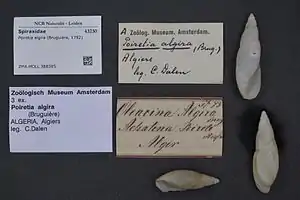 NCB Naturalis - Leiden
Spiraxidae 43230
Poiretia algira (Bruguière, 1792)
ZMA.MOLL.388385
A Zoölog. Museum Amsterdam.
Poiretia algira (Brug.)
Algiers
leg. C. Dalen
Zoölogisch Museum Amsterdam
3 ex.
Poiretia algira
(Bruguière)
ALGERIA, Algiers
leg. C.Dalen
Algira
Algir